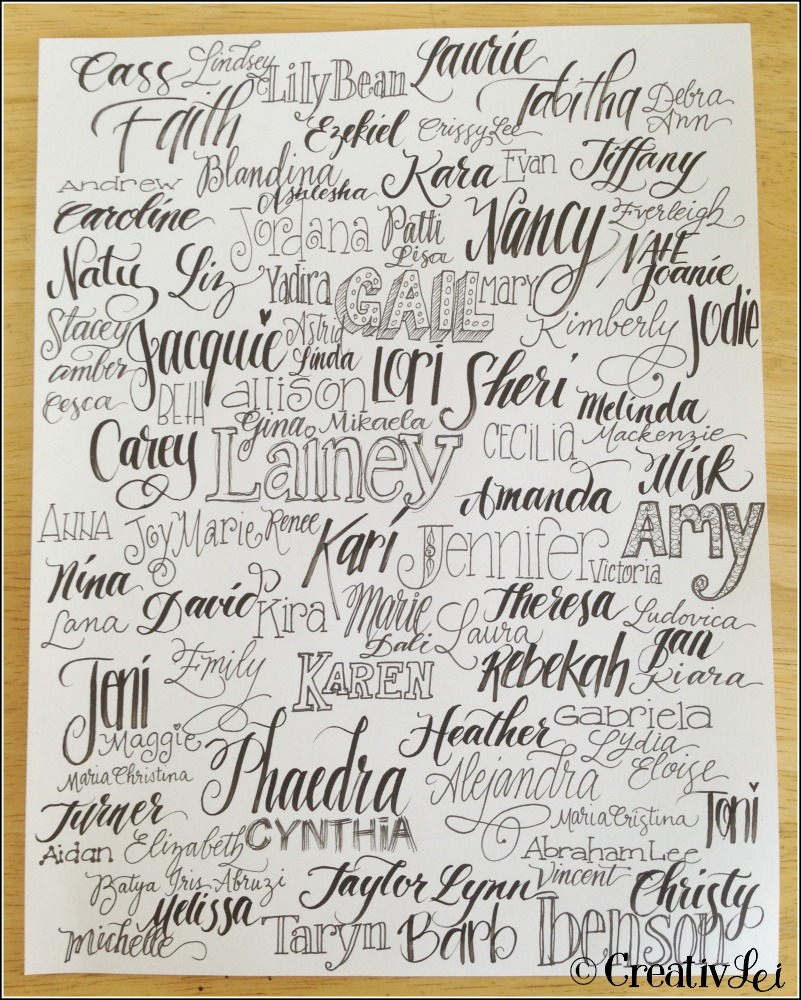 Cass Lindsey LilyBean Laurie
Faith Ezekiel CrissyLee Tabitha Debra Ann
Andrew Blandina Ashlesha Kara Evan Tiffany
Caroline Jordana Patti Lisa Nancy Everleigh
Naty Liz Yadira GAIL Mary NATE Joanie
Stacey Jacquie Astrid Linda Kimberly Jodie
amber BETH allison Lori Sheri Melinda
Cesca Gina Mikaela CECILIA Mackenzie
Carey Lainey Amanda Misk
ANNA JoyMarie Renee Kari Jennifer Victoria Amy
Nina David Kira Marie Theresa Ludovica
Lana Dali Laura Jan
Jeni Emily KAREN Rebekah Kiara
Maggie Phaedra Heather Gabriela
MariaChristina Alejandra Lydia Eloise
Turner CYNTHIA MariaCristina Toni
Aidan Elizabeth AbrahamLee
Batya Iris Abruzi TaylorLynn Vincent Christy
Melissa
Michelle Taryn Barb benson
© CreativLei